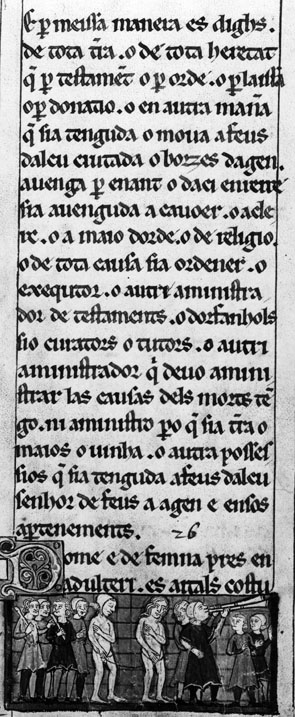 E p meissa manera es dighs.
de tota tr̃a. o de tota heretat
q̃ p testamẽt o p orde. o p laissa
o p donatio. o en autra mañа
q̃ sia tenguda o moua afeus
daleu ciutada o borzes dagen.
auenga p enant o daci enreire
sia auenguda a cauoer. o a cler
re. o a maio dorde. o de religio.
o de tota causa sia ordener. o
exequtor. o autri aministra
dor de testaments. o dorfanhols
sio curators o tutors. o autri
aministrador q̃ deuo amini
strar las causas dels morts tẽ
go. ni aministro po q̃ sia tr̃a o
maios o uinha. o autra posses
sios q̃ sia tenguda afeus daleu
senhor de feus a agen e en sos
aptenements. 26
Dome e de femna pres en
adulteri. es attals costu